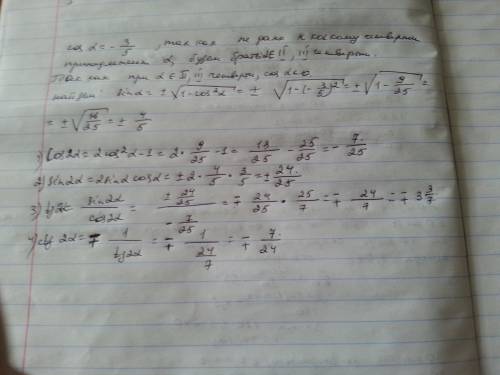 cos α = - 3/5, так как не дано к какому четверти
принадлежит α, будем брать α∈ II, III четверти.
Так как при α ∈ II, III четверти, cos α<0.
найдем: sin α = ± √(1-cos²α) = ± √(1-(-3/5)²) = ± √(1-9/25) =
= ± √(16/25) = ± 4/5
1) Cos2α = 2cos²α-1 = 2 · 9/25 -1 = 18/25 - 25/25 = - 7/25
2) sin2α = 2sinα cosα = ± 2 · 4/5 · 3/5 = ± 24/25.
3) tg2α = sin2α/cos2α = (± 24/25)/(- 7/25) = ∓ 24/25 · 25/7 = ∓ 24/7 = ∓ 3 3/7
4) ctg 2α = ∓ 1/tg2α = ∓ 1/(24/7) = ∓ 7/24